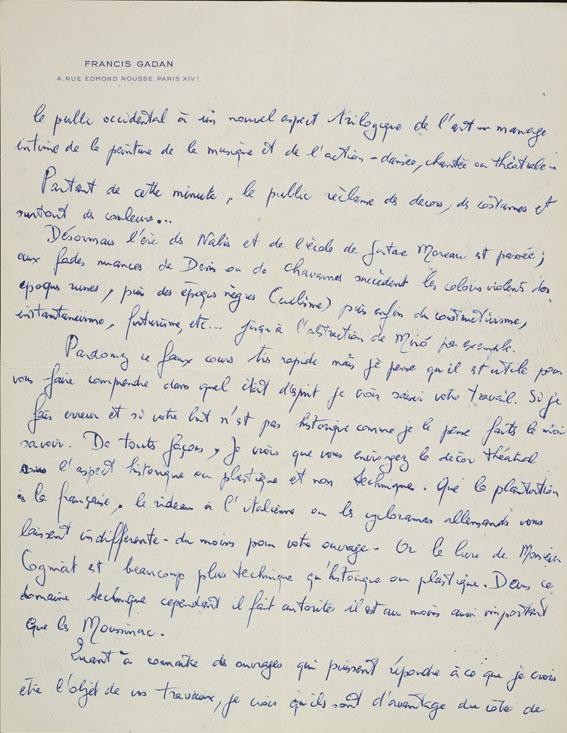 FRANCIS GADAN
4, RUE EDMOND ROUSSE. PARIS XIVᵉ
le public occidental à un nouvel aspect trilogique de l'art – mariage
intime de la peinture de la musique et de l'action – dansée, chantée ou théatrale –
Partant de cette minute, le public réclame des decors, des costumes et
surtout des couleurs...
Désormais l'ère des Nabis et de l'école de Gustave Moreau est passée;
aux fades nuances de Denis ou de Chavannes succèdent les coloris violents des
époques russes, puis des époques nègres (cubisme) puis enfin du constructivisme,
instantanéisme, futurisme, etc... jusqu'à l'abstraction de Miró par exemple.
Pardonnez ce faux cours très rapide mais je pense qu'il est utile pour
vous faire comprendre dans quel état d'esprit je vois votre travail. Si je
fais erreur et si votre but n'est pas historique comme je le pense faites le moi
savoir. De toute façons, je crois que vous envisagez le décor théatral
sous l'aspect historique ou plastique et non technique. Que la plantation
à la française, le rideau à l'italienne ou les cycloramas allemands vous
laissent indifférente – du moins pour votre ouvrage – Or le livre de Monsieur
Cogniat est beaucoup plus technique qu'historique ou plastique. Dans ce
domaine technique cependant il fait autorité il est au moins aussi important
que les Moussinac.
Quant à connaître des ouvrages qui puissent répondre à ce que je crois
être l'objet de vos travaux, je crois qu'ils sont d'avantage du côté de